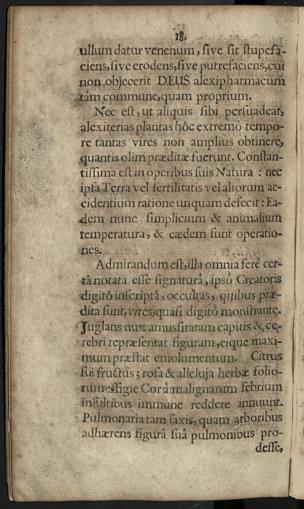 18.
ullum datur venenum, sive sit stupefa-
ciens, sive erodens, sive putrefaciens, cui
non objecerit DEUS alexipharmacum
tàm commune, quam proprium.
Nec est, ut aliquis sibi persuadeat,
alexiterias plantas hôc extremo tempo-
re tantas vires non amplius obtinere,
quantis olim præditæ fuerunt. Constan-
tissima est in operibus suis Natura: nec
ipsa Terra vel fertilitatis vel aliorum ac-
cidentium ratione unquam defecit: Ea-
dem nunc simplicium & animalium
temperatura, & eædem sunt operatio-
nes.
Admirandum est, illa omnia ferè cer-
tâ notata esse signaturâ, ipsô Creatoris
digitô inscriptâ, occultas, quibus præ-
dita sunt, vires, quasi digitô monstrante.
Juglans nux amussitatam capitis & ce-
rebri repræsentat figuram, eique maxi-
mum præstat emolumentum. Citrus
sui fructus; rosa & alleluja herbæ folio-
rum effigie Cor à malignarum febrium
insultibus immune reddere innuunt.
Pulmonaria tam saxis, quam arboribus
adhærens figurâ suâ pulmonibus pro-
desse,